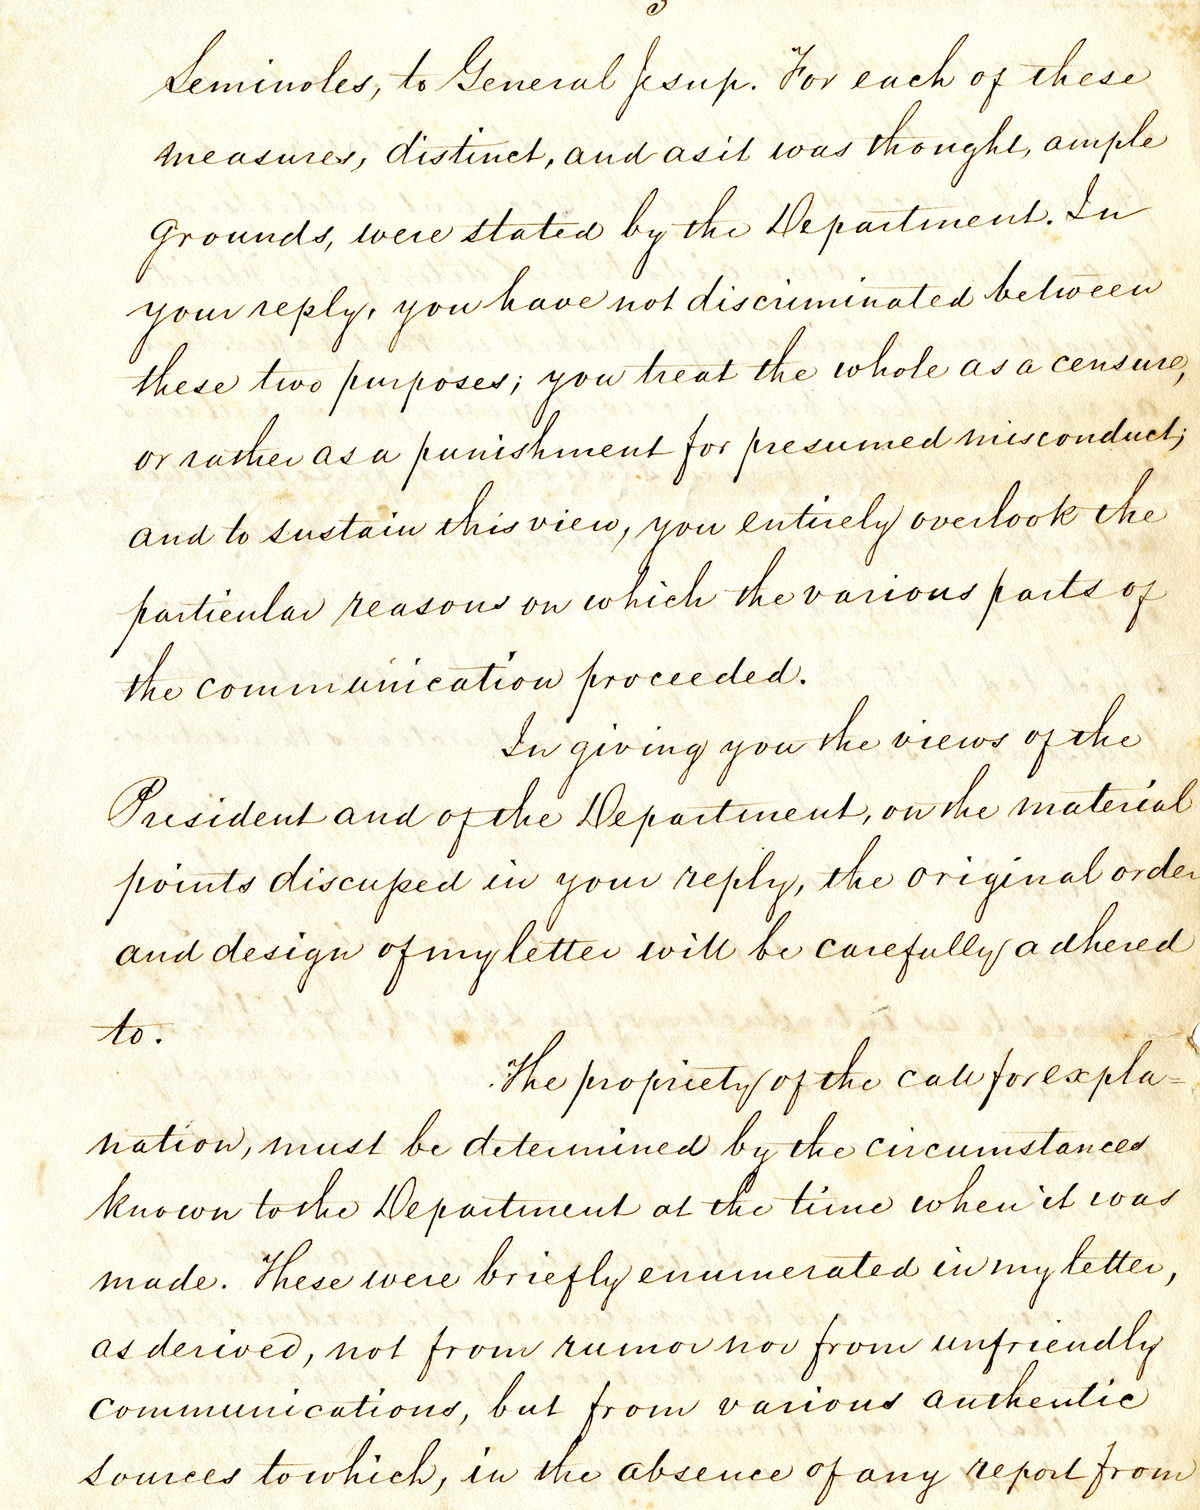 3
Seminoles, to General Jesup. For each of these
measures, distinct, and as it was thought, ample
grounds, were stated by the Department. In
your reply, you have not discriminated between
these two purposes; you treat the whole as a censure,
or rather as a punishment for presumed misconduct;
and to sustain this view, you entirely overlook the
particular reasons on which the various parts of
the communication proceeded.
In giving you the views of the
President and of the Department, on the material
points discussed in your reply, the original order
and design of my letter will be carefully adhered
to.
The propriety of the call for expla=
nation, must be determined by the circumstances
known to the Department at the time when it was
made. These were briefly enumerated in my letter,
as derived, not from rumor nor from unfriendly
communications, but from various authentic
sources to which, in the absence of any report from